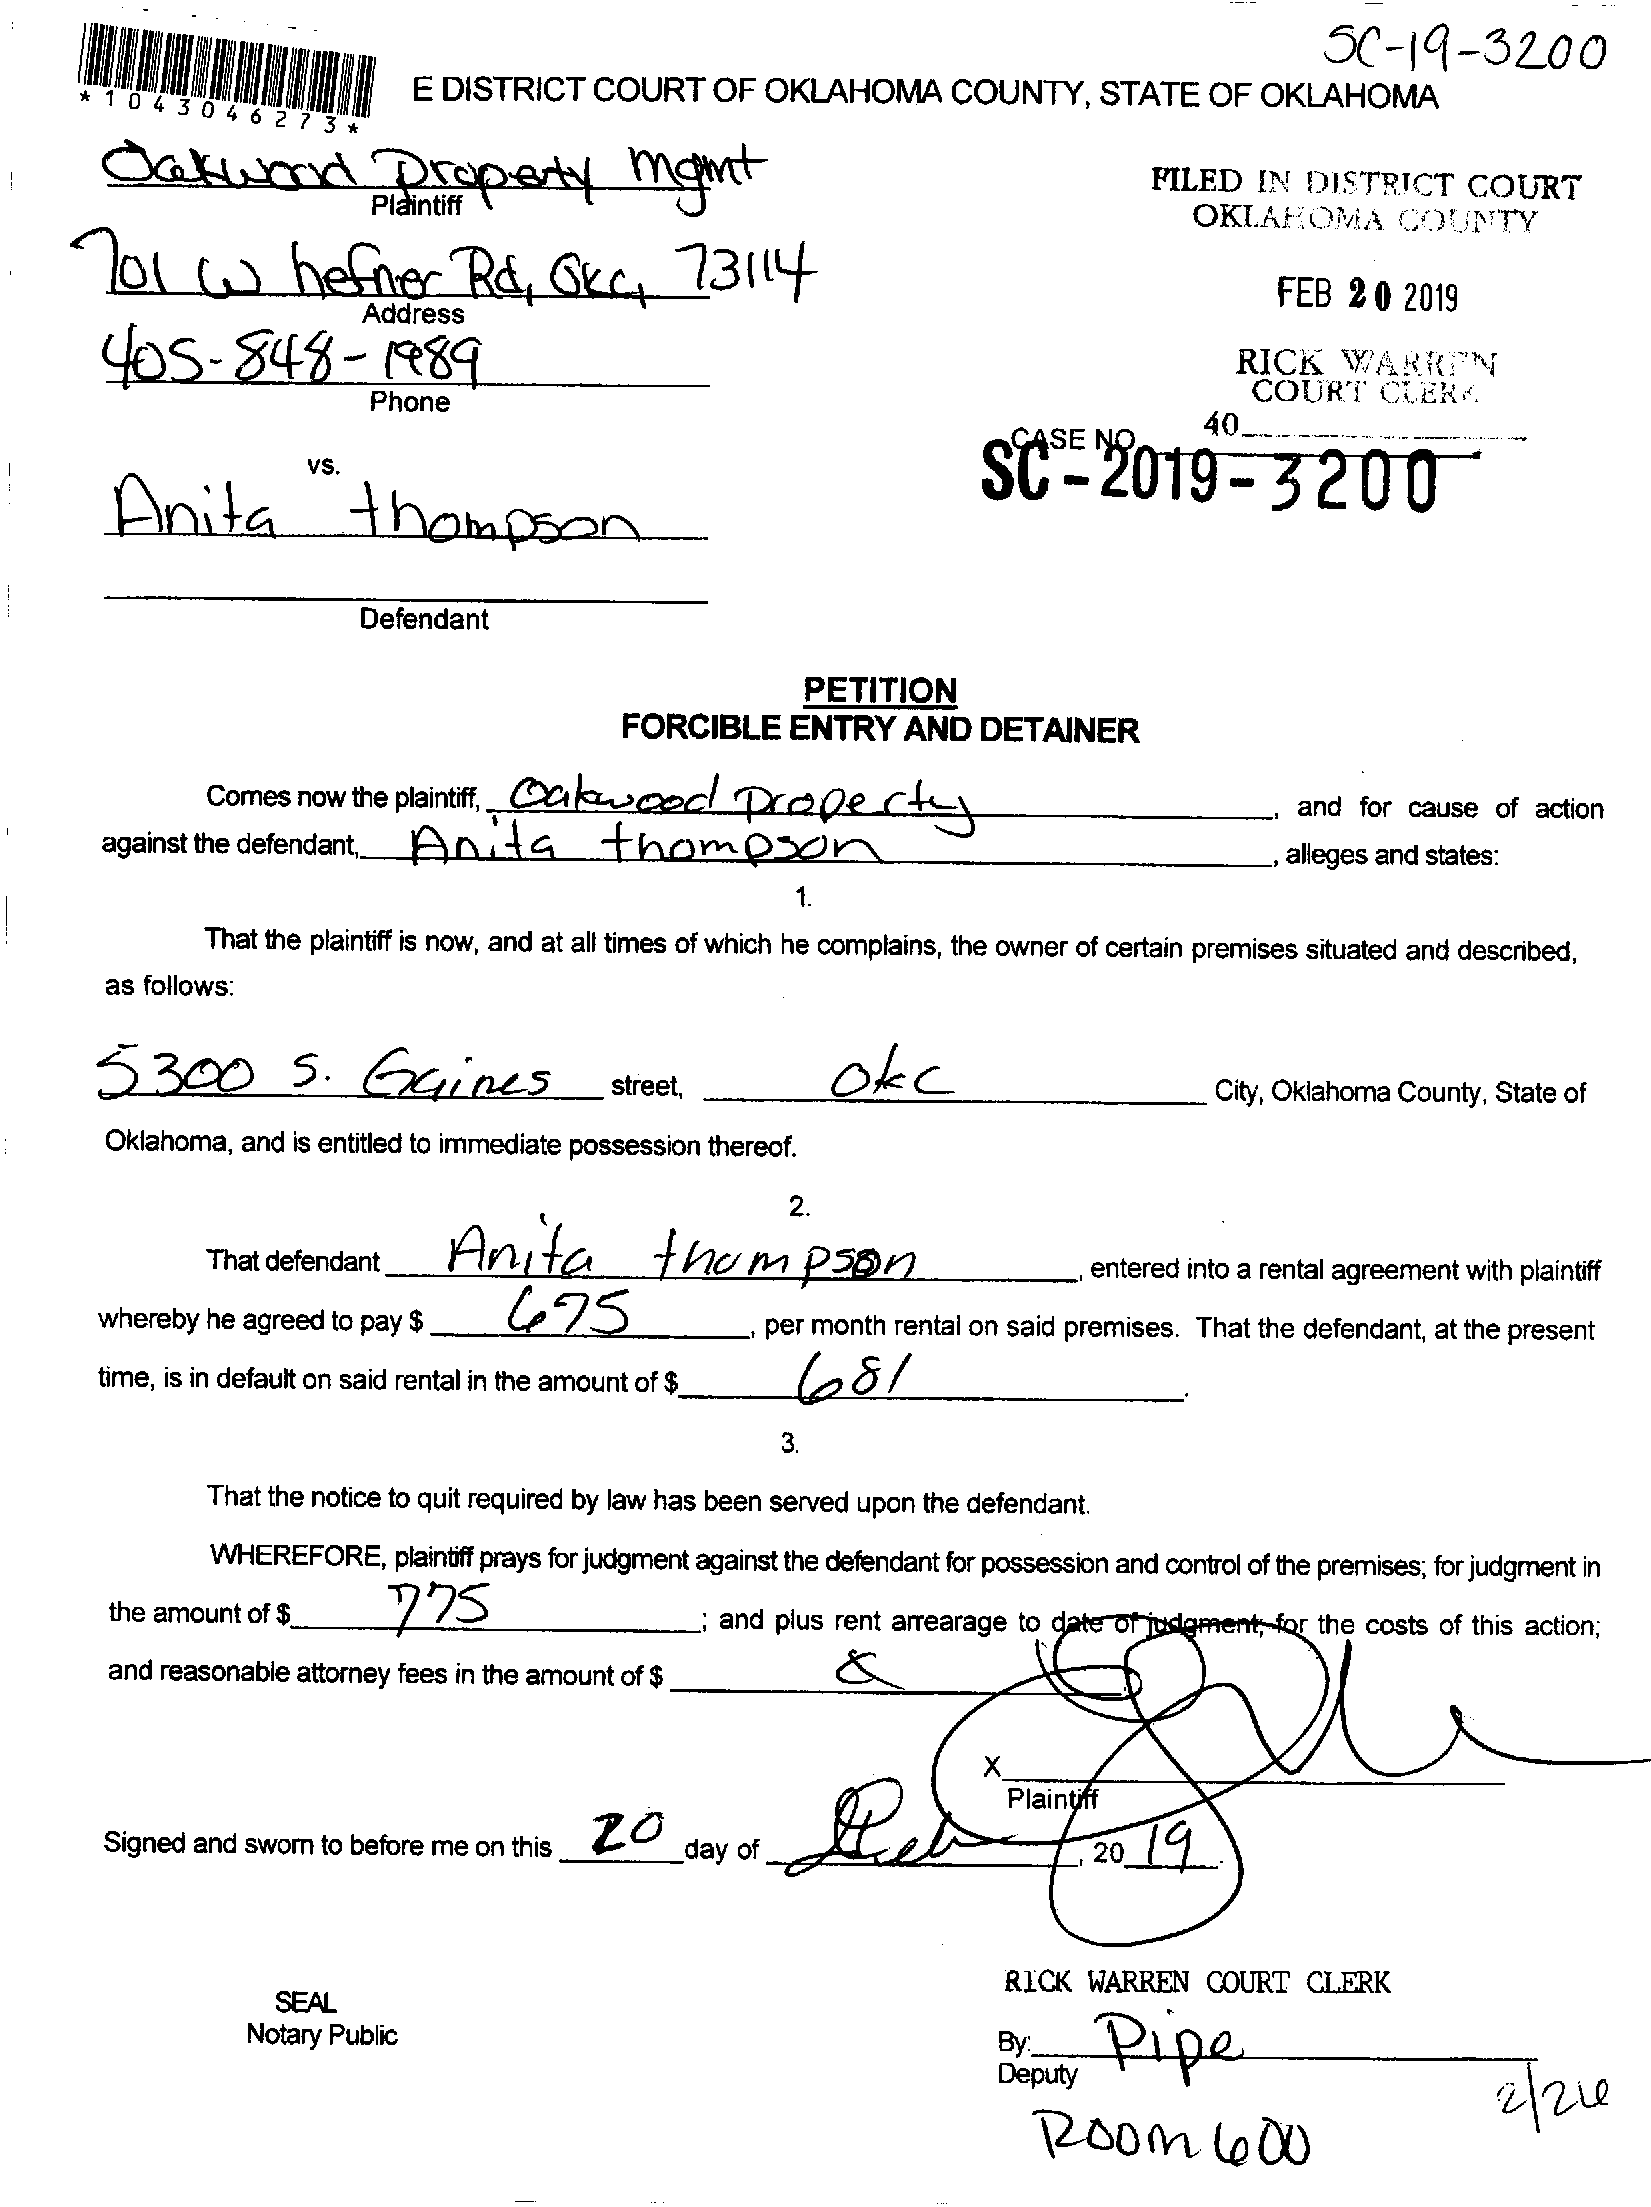 SC-19-3200
*1043046273*
E DISTRICT COURT OF OKLAHOMA COUNTY, STATE OF OKLAHOMA
Oakwood Property Mgmt
Plaintiff
FILED IN DISTRICT COURT
OKLAHOMA COUNTY
701 W hefner Rd, Okc, 73114
Address
FEB 20 2019
405-848-1989
Phone
RICK WARREN
COURT CLERK
40
CASE NO.
SC-2019-3200
vs.
Anita thompson
Defendant
PETITION
FORCIBLE ENTRY AND DETAINER
Comes now the plaintiff, Oakwood Property, and for cause of action
against the defendant, Anita thompson, alleges and states:
1.
That the plaintiff is now, and at all times of which he complains, the owner of certain premises situated and described,
as follows:
5300 S. Gaines street, Okc City, Oklahoma County, State of
Oklahoma, and is entitled to immediate possession thereof.
2.
That defendant Anita thompson, entered into a rental agreement with plaintiff
whereby he agreed to pay $ 675, per month rental on said premises. That the defendant, at the present
time, is in default on said rental in the amount of $ 681.
3.
That the notice to quit required by law has been served upon the defendant.
WHEREFORE, plaintiff prays for judgment against the defendant for possession and control of the premises; for judgment in
the amount of $ 775; and plus rent arrearage to date of judgment; for the costs of this action;
and reasonable attorney fees in the amount of $
X
Plaintiff
Signed and sworn to before me on this 20 day of Feb, 20 19
RICK WARREN COURT CLERK
SEAL
Notary Public
By: Pipe
Deputy
2/26
ROOM 600